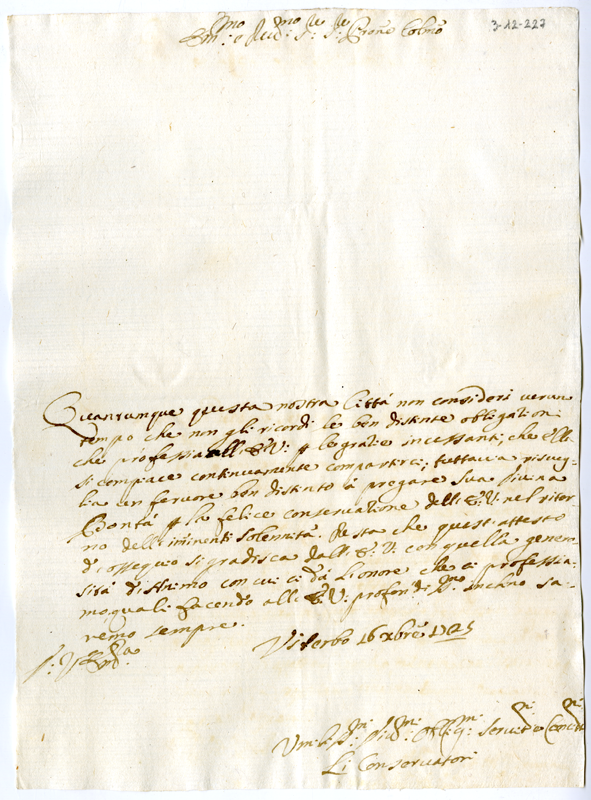 3-12-227
Em:mo e Reu:mo Sre Sre Prone Colmo
Quantunque questa nostra Città non consideri verun
tempo che non gli ricordi le ben distinte obligationi
che professa all' E: V: p le gratie incessanti, che ella
si compiace continuamente compartirci; tuttavia risveg-
lia un fervore ben distinto à pregare Sua Divina
Bontà p la felice conservatione dell' E: V: nel ritor-
no dell' iminenti solennità. Resta che quest' attesto
d' ossequio si gradisca dall' E: V. con quella genero-
sità di Animo con cui ci dà l'onore che ci professia-
mo quali facendo all' E: V: profondis.mo inchino sa-
remo sempre.
Viterbo 16 xbre 1725
Li Conservatori